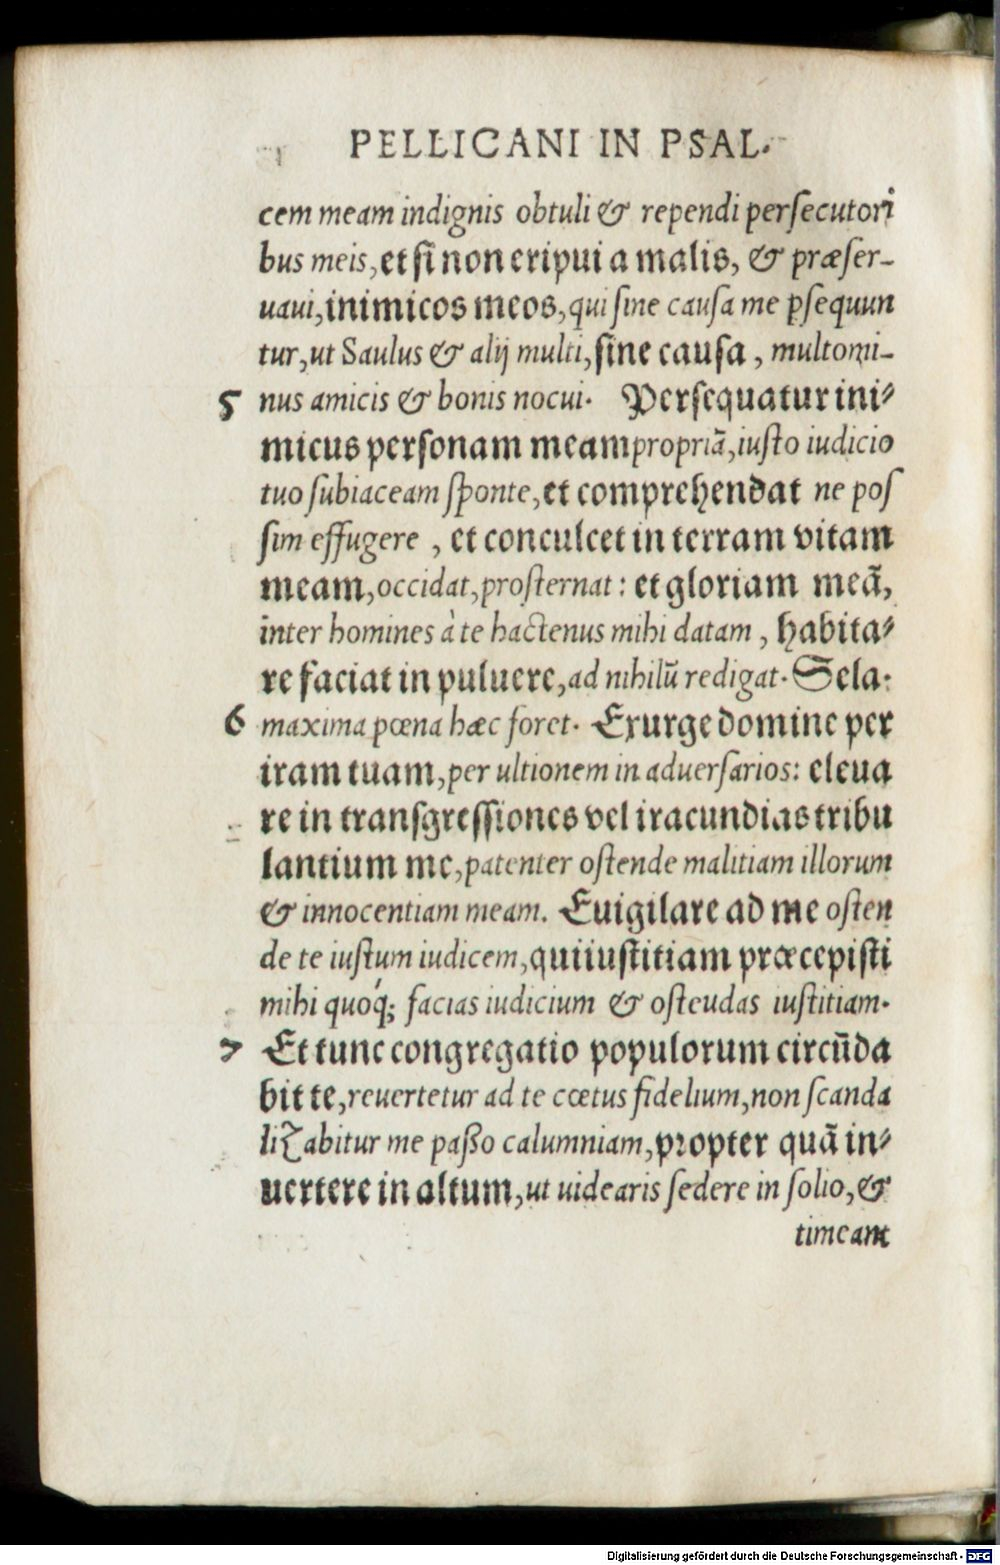 PELLICANI IN PSAL.
cem meam indignis obtuli & rependi perſecutori
bus meis, et ſi non eripui a malis, & præſer-
uaui, inimicos meos, qui ſine cauſa me ꝑſequun
tur, ut Saulus & alij multi, ſine cauſa, multomi-
5 nus amicis & bonis nocui. Perſequatur ini⸗
micus perſonam meam propriā, iuſto iudicio
tuo ſubiaceam ſponte, et comprehendat ne poſ
ſim effugere, et conculcet in terram vitam
meam, occidat, proſternat: et gloriam meā,
inter homines à te hactenus mihi datam, habita⸗
re faciat in puluere, ad nihilū redigat. Sela.
6 maxima pœna hæc foret. Exurge domine per
iram tuam, per ultionem in aduerſarios: eleua
re in transgreſſiones vel iracundias tribu
lantium me, patenter oſtende malitiam illorum
& innocentiam meam. Euigilare ad me oſten
de te iuſtum iudicem, qui iuſtitiam præcepiſti
mihi quoq́; facias iudicium & oſteudas iuſtitiam.
7 Et tunc congregatio populorum circūda
bit te, reuertetur ad te cœtus fidelium, non ſcanda
lizabitur me paßo calumniam, propter quā in⸗
uertere in altum, ut uidearis ſedere in ſolio, &
timeant
Digitalisierung gefördert durch die Deutsche Forschungsgemeinschaft - DFG